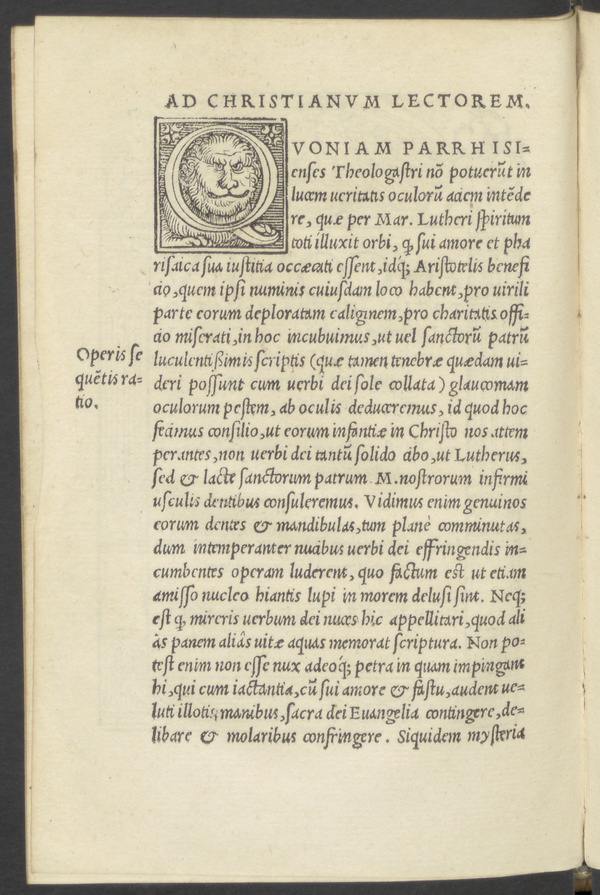 AD CHRISTIANVM LECTOREM.
QVONIAM PARRHISI=
enses Theologastri nō potuerūt in
lucem ueritatis oculorū aciem intēde
re, quæ per Mar. Lutheri spiritum
toti illuxit orbi, ꝙ sui amore et pha
risaica sua iustitia occæcati essent, idq́; Aristotelis benefi
cio, quem ipsi numinis cuiusdam loco habent, pro uirili
parte eorum deploratam caliginem, pro charitatis offi=
cio miserati, in hoc incubuimus, ut uel sanctorū patrū
Operis se
quētis ra=
tio.
luculentißimis scriptis (quæ tamen tenebræ quædam ui=
deri possunt cum uerbi dei sole collata) glaucomam
oculorum pestem, ab oculis deduceremus, id quod hoc
fecimus consilio, ut eorum infantiæ in Christo nos attem
perantes, non uerbi dei tantū solido cibo, ut Lutherus,
sed & lacte sanctorum patrum M. nostrorum infirmi
usculis dentibus consuleremus. Vidimus enim genuinos
eorum dentes & mandibulas, tum planè comminutas,
dum intemperanter nucibus uerbi dei effringendis in=
cumbentes operam luderent, quo factum est ut etiam
amisso nucleo hiantis lupi in morem delusi sint. Neq;
est ꝙ mireris uerbum dei nuces hic appellitari, quod ali
ás panem aliâs uitæ aquas memorat scriptura. Non po=
test enim non esse nux adeoq́; petra in quam impingant
hi, qui cum iactantia, cū sui amore & fastu, audent ue=
luti illotis manibus, sacra dei Euangelia contingere, de=
libare & molaribus confringere. Siquidem mysteria